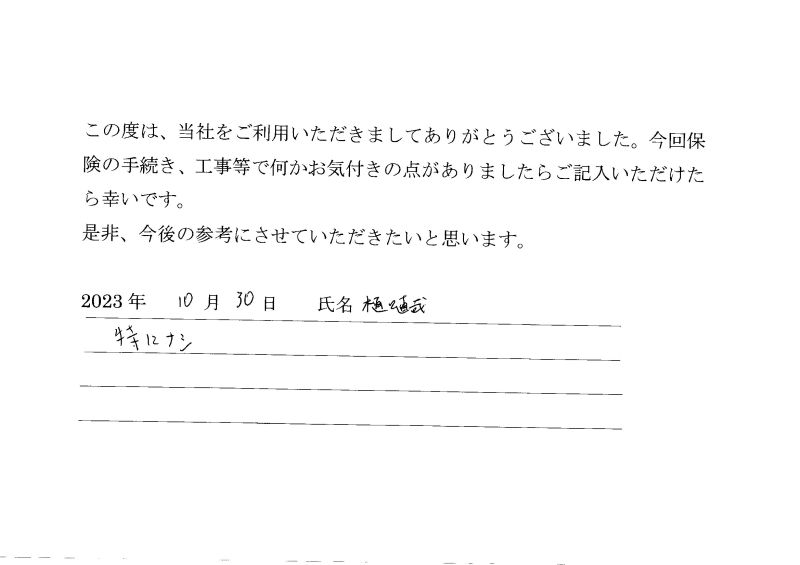 この度は、当社をご利用いただきましてありがとうございました。今回保
険の手続き、工事等で何かお気付きの点がありましたらご記入いただけた
ら幸いです。
是非、今後の参考にさせていただきたいと思います。
2023 年 10 月 30 日 氏名
特にナシ